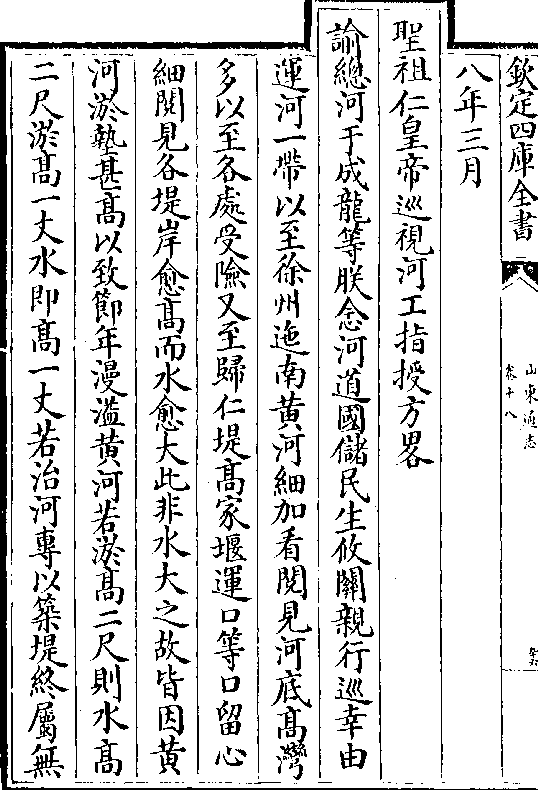 欽定四庫全書
山東通志
卷十八
八年三月
聖祖仁皇帝巡視河工指授方畧
諭總河于成龍等朕念河道國儲民生攸關親行巡幸由
運河一帶以至徐州迤南黃河細加看閱見河底髙灣
多以至各處受險又至歸仁堤髙家堰運口等口留心
細閱見各堤岸愈髙而水愈大此非水大之故皆因黃
河淤墊甚髙以致節年漫溢黃河若淤髙二尺則水髙
二尺淤髙一丈水即髙一丈若治河專以築堤終屬無